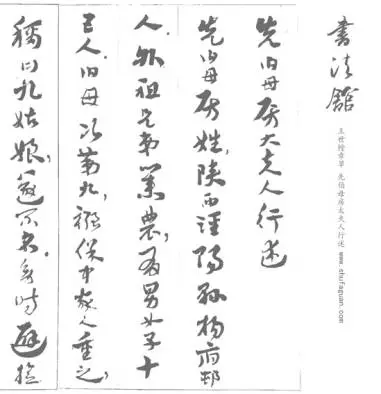 書法館
王世鏜章草 先伯母房太夫人行述 www.shufaguan.com
先伯母房太夫人行述
先伯母房姓,陝西涇陽孫楊府邨
人。外祖兄弟業農,有男女子十
五人。伯母次第九,襁褓中家人重之,
稱曰九姑娘,遂不名。時避